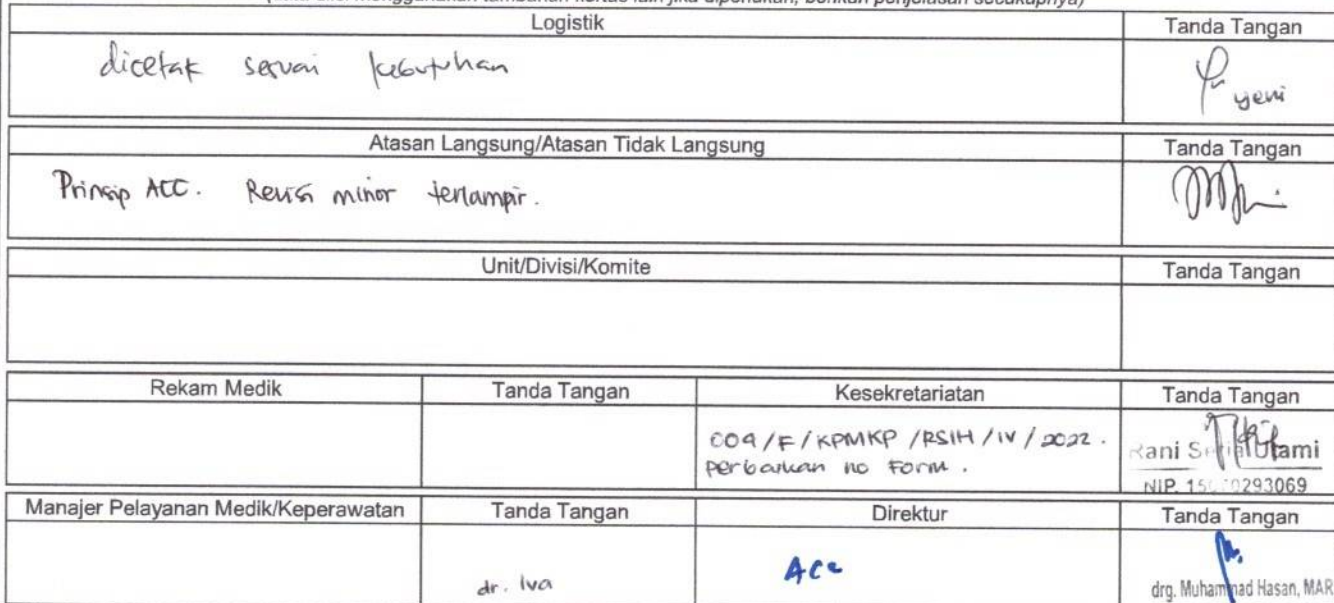 menggunakan tambahan kertas lain jika diperlukan, berikan penjelasan secukupnya)
Logistik Tanda Tangan
dicetak sesuai kebutuhan
yeni
Atasan Langsung/Atasan Tidak Langsung Tanda Tangan
Prinsip ACC. Revisi minor terlampir.
Unit/Divisi/Komite Tanda Tangan
Rekam Medik Tanda Tangan Kesekretariatan Tanda Tangan
004/F/KPMKP/RSIH/IV/2022.
perbaikan no Form.
Rani Utami
NIP. 0293069
Manajer Pelayanan Medik/Keperawatan Tanda Tangan Direktur Tanda Tangan
dr. Iva
Acc
drg. Muhammad Hasan, MAR